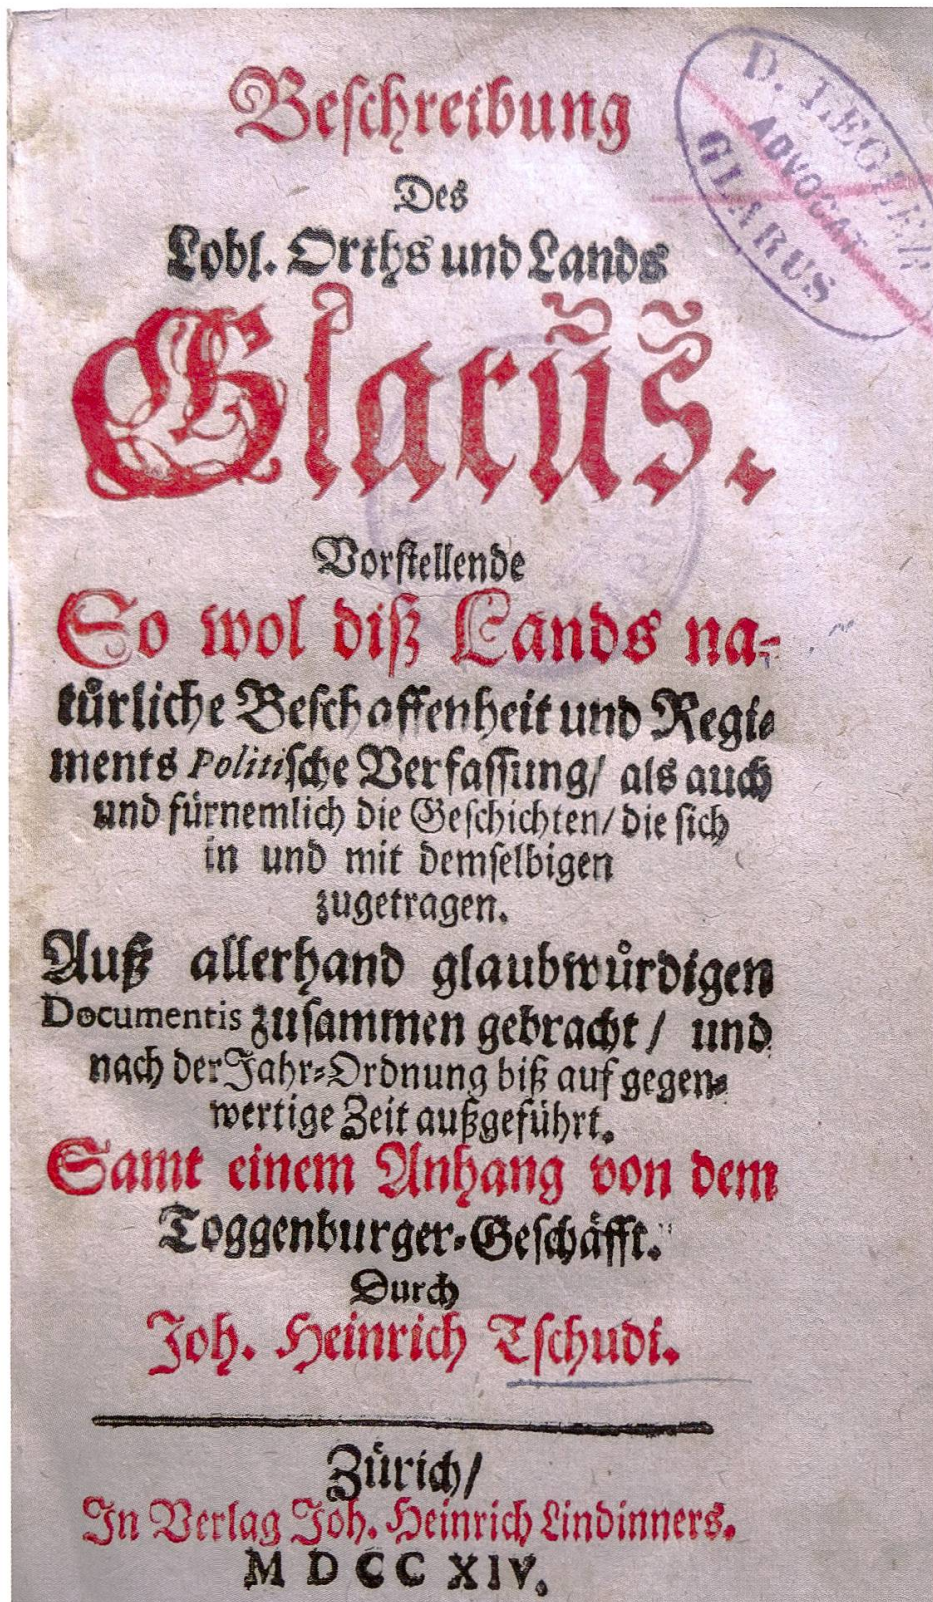 Beschreibung
Des
Lobl. Orths und Lands
Glarus.
Vorstellende
So wol diß Lands na-
tůrliche Beschaffenheit und Regi-
ments Politische Verfassung/ als auch
und fürnemlich die Geschichten/ die sich
in und mit demselbigen
zugetragen.
Auß allerhand glaubwůrdigen
Documentis zusammen gebracht/ und
nach der Jahr-Ordnung biß auf gegen-
wertige Zeit außgeführt.
Samt einem Anhang von dem
Toggenburger-Geschäfft.
Durch
Joh. Heinrich Tschudi.
Zürich/
In Verlag Joh. Heinrich Lindinners.
MDCCXIV.
D. LEGLER
ADVOCAT
GLARUS